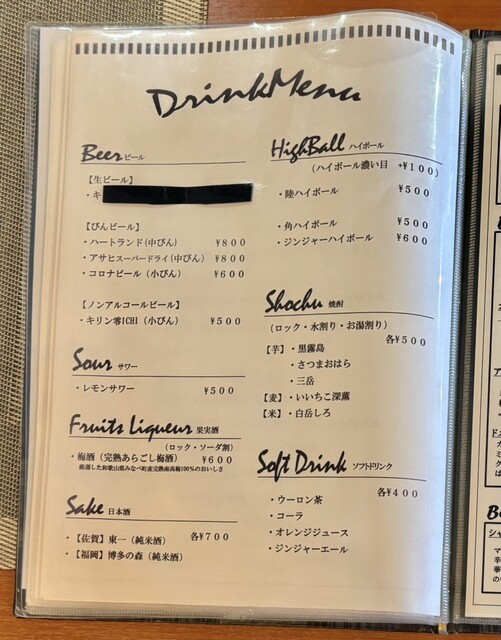 DrinkMenu
Beer ビール
【生ビール】
・キ
【びんビール】
・ハートランド(中びん) ¥800
・アサヒスーパードライ(中びん) ¥800
・コロナビール(小びん) ¥600
【ノンアルコールビール】
・キリン零ICHI(小びん) ¥500
Sour サワー
・レモンサワー ¥500
Fruits Liqueur 果実酒
(ロック・ソーダ割)
・梅酒(完熟あらごし梅酒) ¥600
厳選した和歌山県みなべ町産完熟南高梅100%のおいしさ
Sake 日本酒
・【佐賀】東一(純米酒) 各¥700
・【福岡】博多の森(純米酒)
HighBall ハイボール
(ハイボール濃い目 +¥100)
・陸ハイボール ¥500
・角ハイボール ¥500
・ジンジャーハイボール ¥600
Shochu 焼酎
(ロック・水割り・お湯割り)
【芋】・黒霧島 各¥500
・さつまおはら
・三岳
【麦】・いいちこ深薫
【米】・白岳しろ
Soft Drink ソフトドリンク
・ウーロン茶 各¥400
・コーラ
・オレンジジュース
・ジンジャーエール